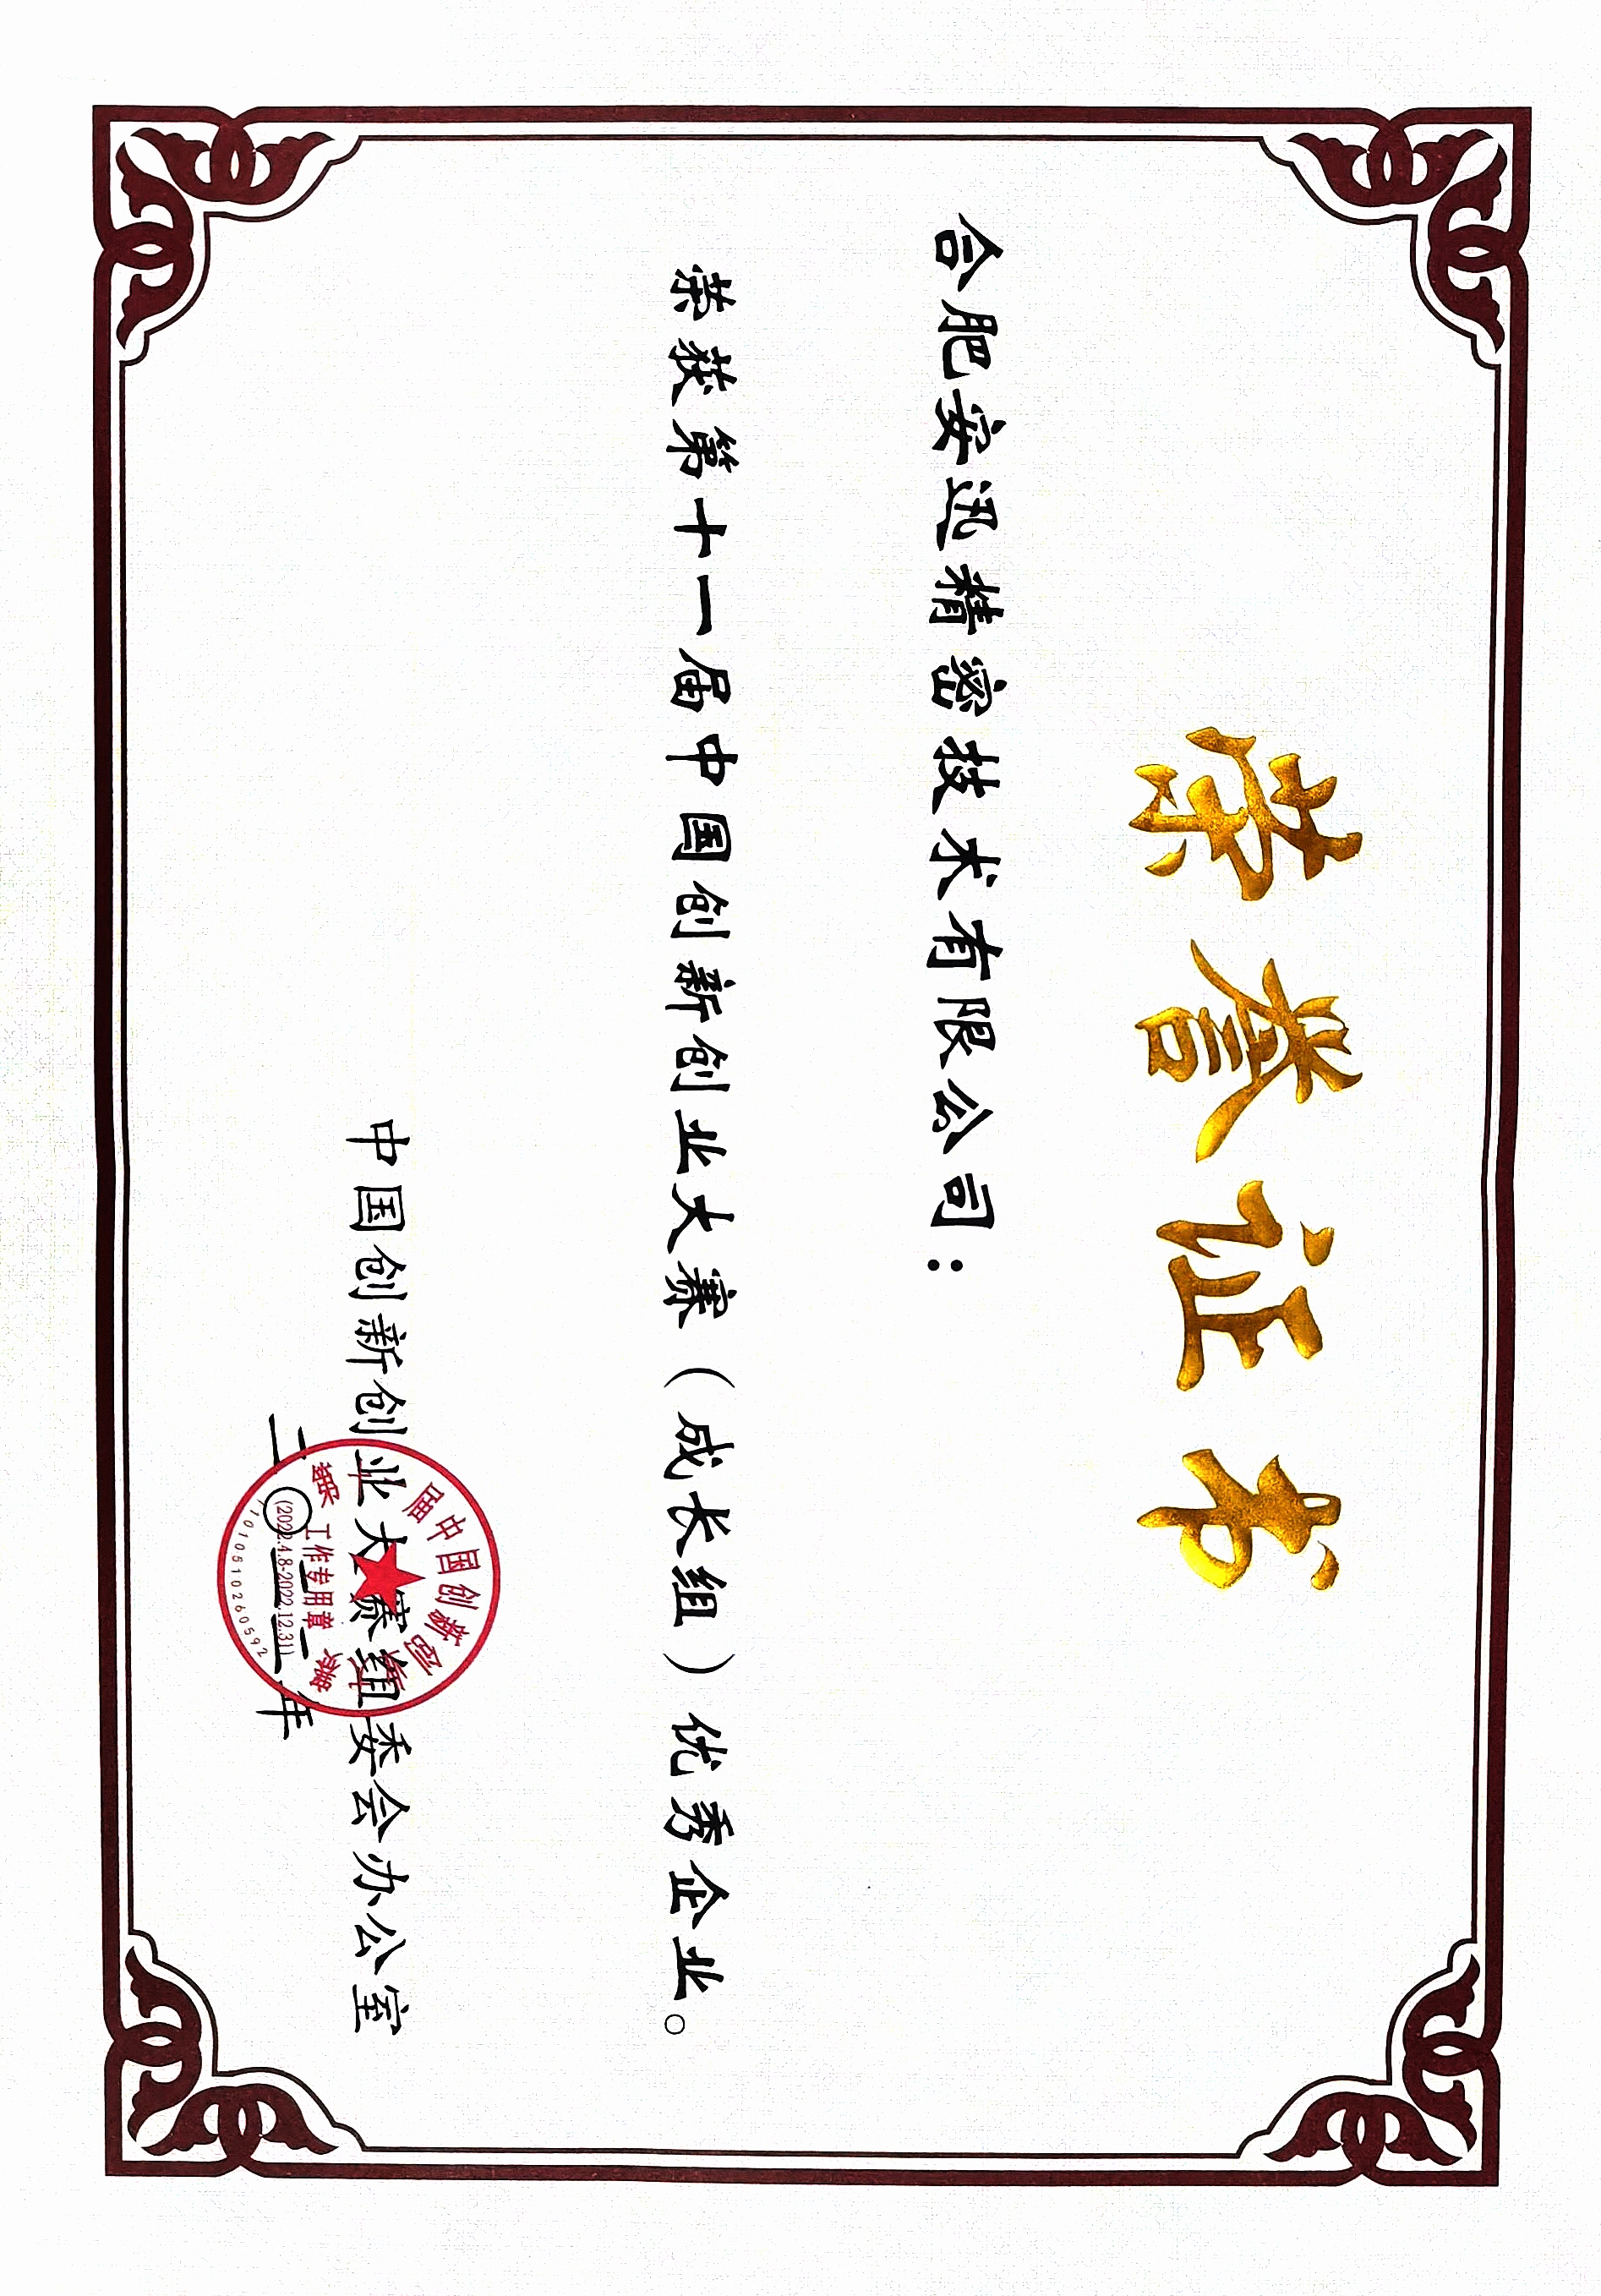 荣誉证书
合肥安迅精密技术有限公司：
荣获第十一届中国创新创业大赛（成长组）优秀企业。
中国创新创业大赛组委会办公室
二〇二二年
第十一届中国创新创业大赛
工作专用章
(2022.4.8-2022.12.31)
1101051026059​2